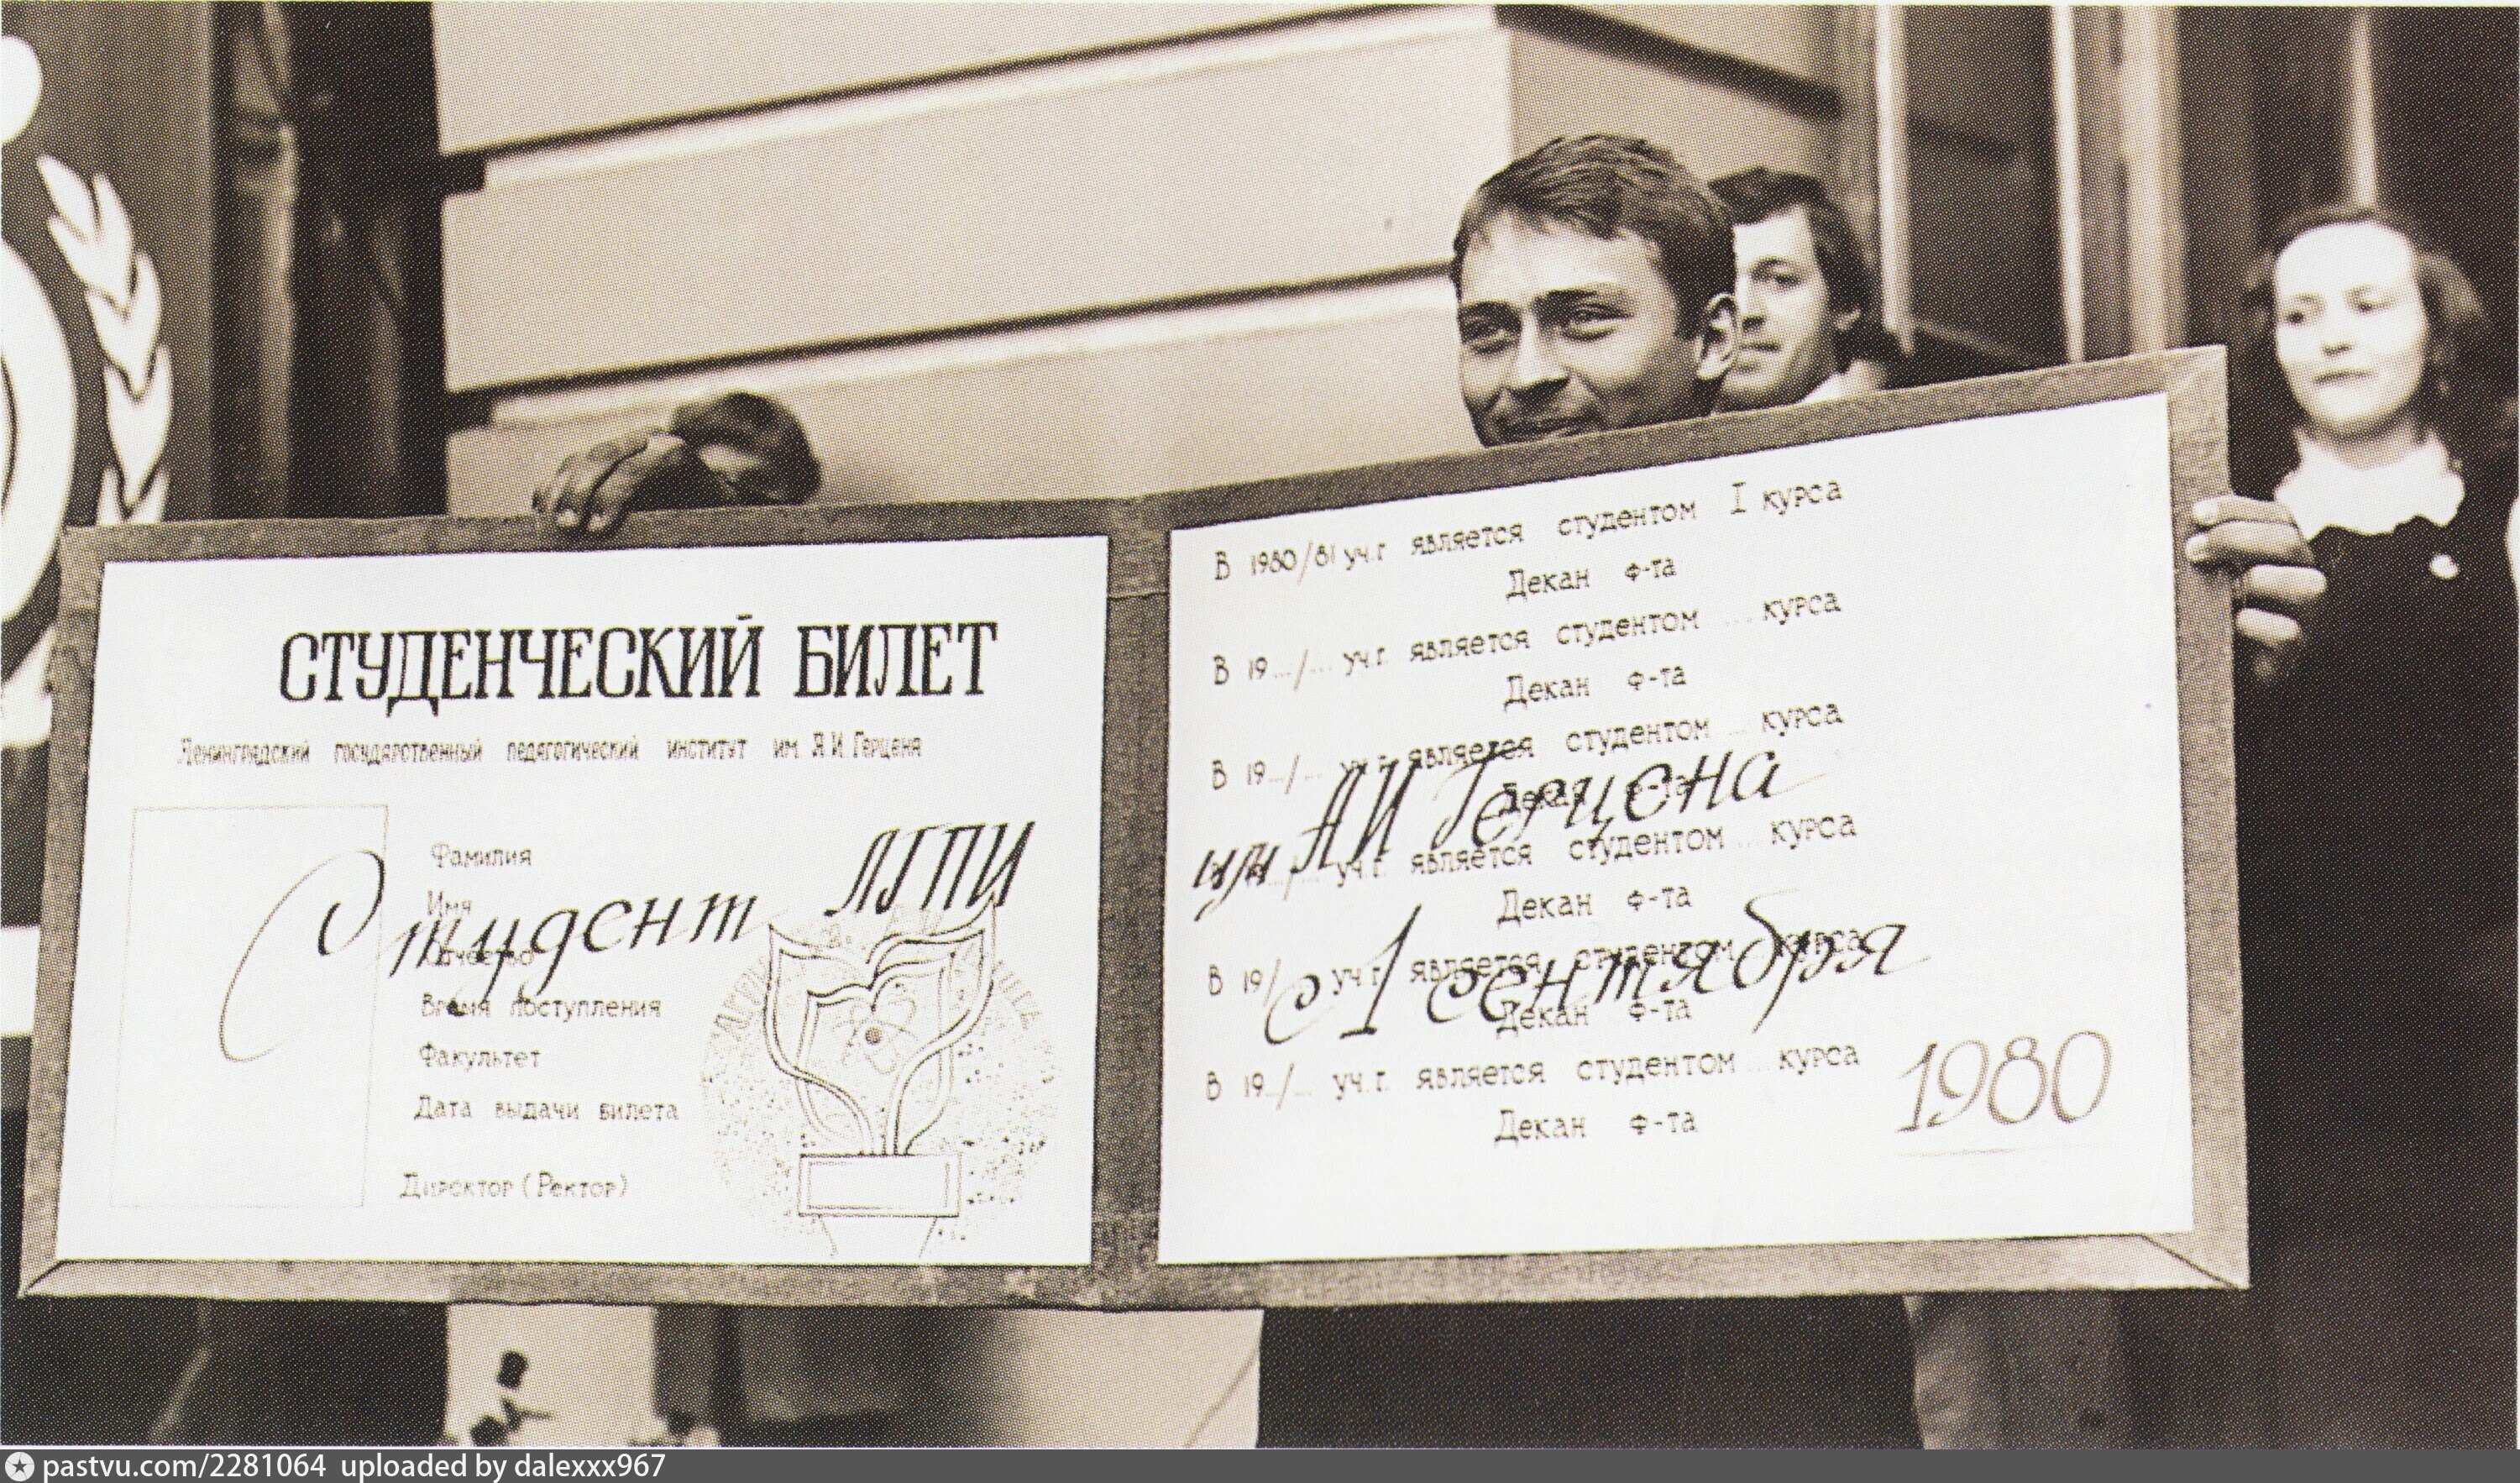 СТУДЕНЧЕСКИЙ БИЛЕТ
Ленинградский государственный педагогический институт им. Я.И. Герцена
Фамилия
Имя
Отчество
Время поступления
Факультет
Дата выдачи билета
Директор (Ректор)
Студент ЛГПИ
В 1980/81 уч.г является студентом I курса
Декан ф-та
В 19.../... уч.г. является студентом ... курса
Декан ф-та
В 19.../... уч.г. является студентом ... курса
Декан ф-та
уч.г. является студентом ... курса
Декан ф-та
В 19/ уч.г. является студентом курса
Декан ф-та
В 19.../... уч.г. является студентом ... курса
Декан ф-та
им АИ Герцена
с 1 сентября
1980
pastvu.com/2281064 uploaded by dalexxx967